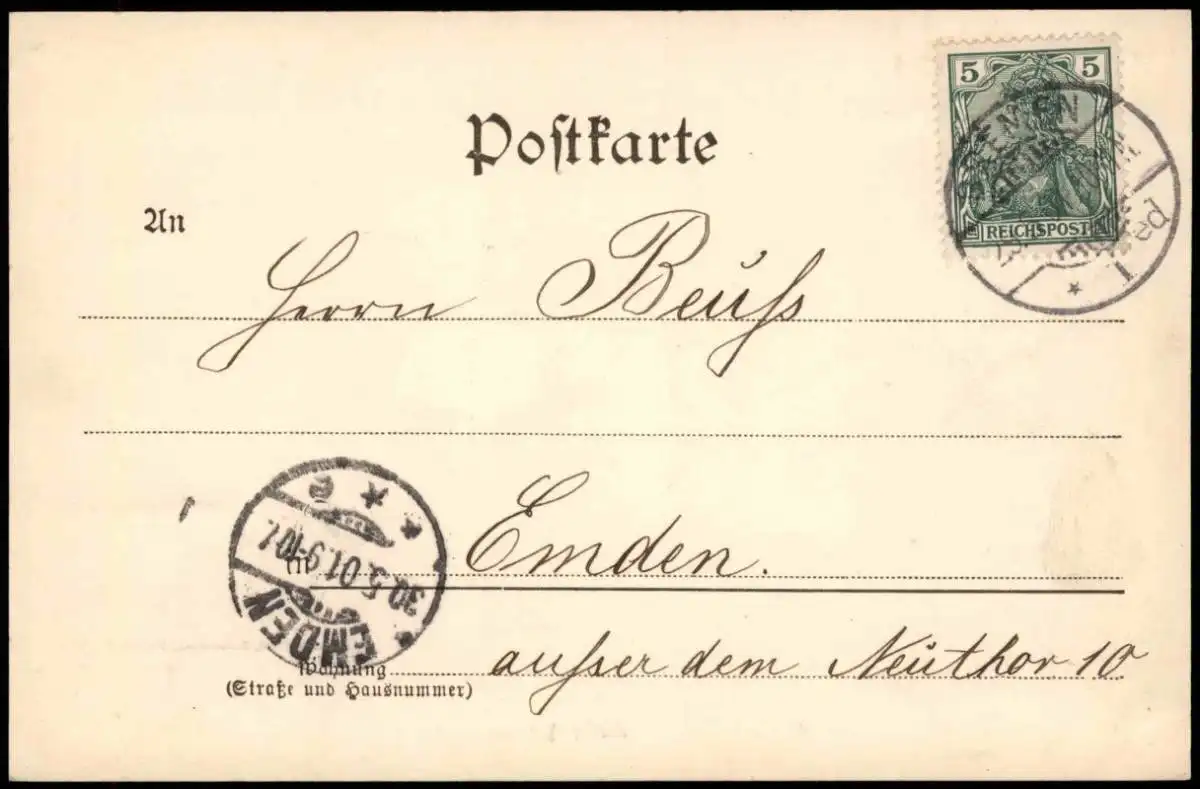 5 5
REICHSPOST
Postkarte
An
Herrn Beuß
in Emden.
EMDEN
30.5.01.9-10
* * e
Wohnung außer dem Neuthor 10
(Straße und Hausnummer)